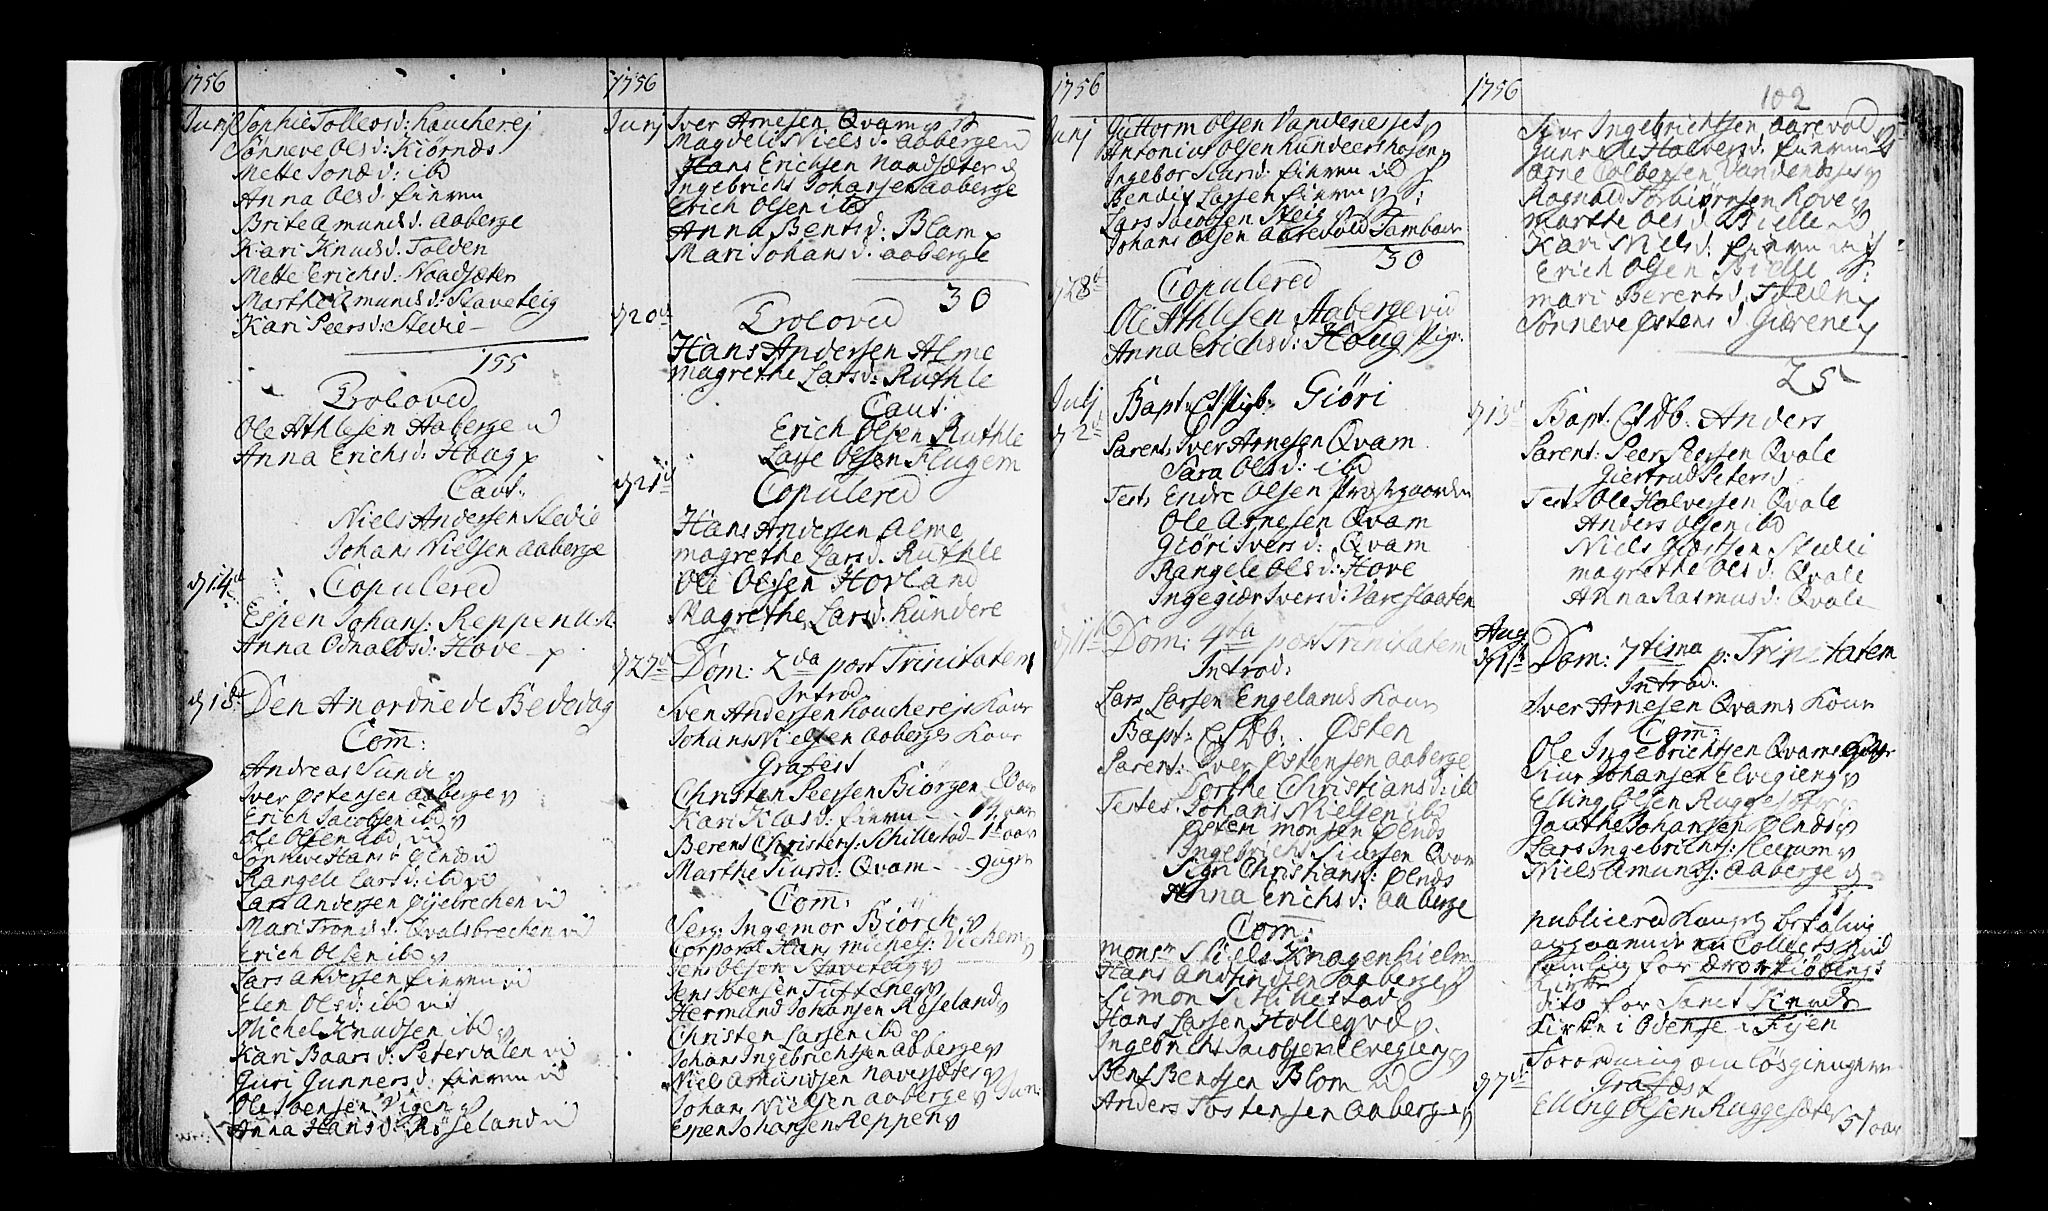 1756
Junj Sophie Tollevsd: Loucherej
Sønneve Olsd: Kiørnæs
Mette Jonæd: ibd
Anna Olsd. Einrem
Brite Amunsd: Aaberge
Kari Knudsd: Tolden
Mette Erichsd: Naadsæter
Marthe Amunsd: Staveteig
Kari Peersd: Stedie
155
Troloved
Ole Athlesen Aaberge
Anna Erichsd: Houg
Caut:
Niels Andersen Stedie
Johans Nielsen Aaberge
d 14de Copulered
Espen Johans: Reppen
Anna Odnalds d: Hove
d 18de Den Anordnede Bededag
Com:
Andreas Sunde
Iver Østensen Aaberge
Erich Jacobsen ibd
Ole Olsen ibd
Sønneve Hansd Ølnæs
Rangele Larsd: ibd
Lars Andersen Øyebrechen
Mari Tronsd: Qvalsbrechen
Erich Olsen ibd
Lars Andersen Einrem
Elen Olsd: ibd
Michel Knudsen ibd
Kari Baarsd: Petersdalen
Guri Gunnersd: Einrem
Ole Ibensen Vigen
Anna Hansd: Røseland
1756
Junj Iver Arnesen Qvam
Magdeli Nielsd. Aaberge
Hans Erichsen Naadsæter
Ingebricht Johansen Aaberge
Erich Olsen ibd
Anna Bentsd: Blam
Mari Johansd. Aaberge
30
d 20de Troloved
Hans Andersen Alme
Magrethe Larsd: Ruthle
Caut:
Erich Olsen Ruthle
Lasse Olsen Flugem
d 21de Copulered
Hans Andersen Alme
Magrethe Larsd. Ruthle
Ole Olsen Hovland
Magrethe Larsd: Lundere
d 27de Dom: 2da post Trinitatem
Introd.
Sven Andersen Loucherejs Kone
Johans Nielsen Aaberges Kone
Grafest
Christen Peersen Biørgen
Kari Klasd: Einrem
Berent Christens: Schillestad 1 aar
Marthe Siursd: Qvam 9 uger
Com:
Serg: Ingemor Biørch
Corporal Hans Michels: Vichem
Jens Olsen Staveteig
Jens Ibensen Tuftene
Hermund Johansen Røseland
Christen Larsen ibd
Johans Ingebrichtsen Aaberge
Niels Amundsen Navesæter
Johans Nielsen Aaberge Jun:
Espen Johansen Reppen
1756
Junj Guttorm Olsen Vandenesset
Antonius Olsen Lundeershosen
Ingebor Siursd: Einrem
Bendix Larsen Einrem
Lars Jacobsen Steig
Johans Olsen Aarevold Tambour
30
d 28d Copulered
Ole Athlesen Aaberge
Anna Erichsd: Houg Pige
Julj Bapt: Et Pigb: Giøri
d 2d Parent. Iver Arnesen Qvam
Sara Olsd: ibd
Test. Endre Olsen Prestgaarden
Ole Arnesen Qvam
Giøri Iversd: Qvam
Rangele Olsd: Hove
Ingegiær Iversd: Vareslaaten
d 11te Dom: 4ta post Trinitatem
Introd:
Lars Larsen Engelands Kone
Bapt: Et Db. Østen
Parent: Iver Østensen Aaberge
Dorthe Christiansd: ibd
Testes. Johans Nielsen ibd
Østen Monsen Ølnæs
Ingebricht Siursen Qvam
Sigri Christiansd: Ølnæs
Anna Erichsd: Aaberge
Com:
Monsr Niels Knagenhielm
Hans Andfindsen Aaberge
Simon Schillestad
Hans Larsen Hollegvæ
Ingebricht Jacobsen Elvegieng
Bent Bentsen Blom
Anders Tostensen Aaberge
1756
102
Siur Ingebrichtsen Aarevold
Gunnilde Halversd: Einrem
Arne Colbensen Vandenesset
Ragnald Torbiørnsen Rove
Marthe Olsd Bielle
Kari Nielsd: Einrem
Erich Olsen Bielle
Mari Berentsd:
Sønneve Østensd
25
d 13d Bapt. Et Db. Anders
Parent: Peer Persen Qvale
Giertrud Petersd
Test. Ole Halversen Qvale
Anders Olsen ibd
Niels Giøstsen Stedii
Magrethe Olsd. Qvale
Anna Rasmusd: Qvale
Aug
d 1st Dom: 7tima p: Trinitatem
Introd:
Iver Arnesen Qvams Kone
Com:
Ole Ingebrichtsen Qvam
Siur Johansen Elvegieng
Elling Olsen Ruggesæter
Gauthe Johansen Ølnæs
Lars Ingebrichts: Leerum
Niels Amunds: Aaberge
11
publicered Kongel: befaling
angaaende en Collects
samling for Ærøeskiøbings
Kirke
dito for Sanct Knuds
Kirke i Odense i Fyen
Forordning om løsgiengere
d 7de Grafæst
Elling Olsen Ruggesæter 51 aar